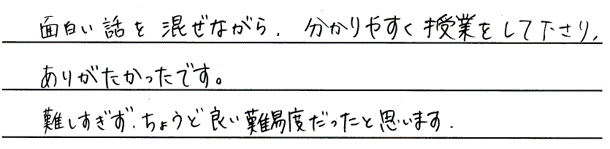 面白い話を混ぜながら、分かりやすく授業をして下さり、
ありがたかったです。
難しすぎず、ちょうど良い難易度だったと思います.